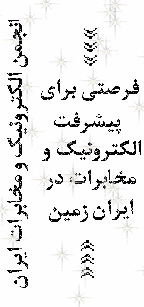 انجمن الکترونیک و مخابرات ایران
فرصتی برای
پیشرفت
الکترونیک و
مخابرات در
ایران زمین